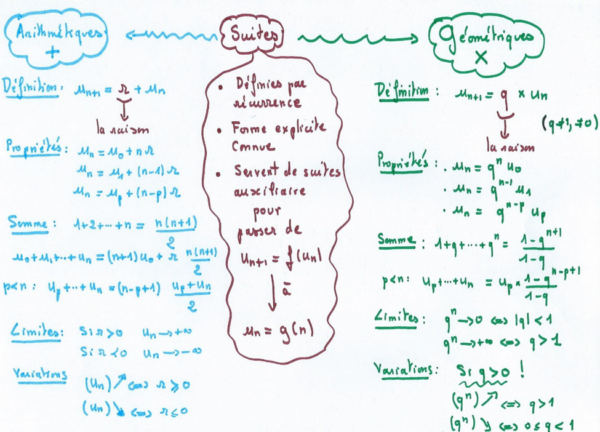 Arithmétiques
+
Définition : u_{n+1} = r + u_n
la raison
Propriétés : u_n = u_0 + n r
u_n = u_1 + (n-1) r
u_n = u_p + (n-p) r
Somme : 1+2+...+n = n(n+1)/2
u_0+u_1+...+u_n = (n+1)u_0 + r n(n+1)/2
p<n : u_p+...+u_n = (n-p+1) (u_p+u_n)/2
Limites : Si r>0 u_n → +∞
Si r<0 u_n → -∞
Variations (u_n) ↗ ⇔ r ≥ 0
(u_n) ↘ ⇔ r ≤ 0
Suites
• Définies par
récurrence
• Forme explicite
connue
• Servent de suites
auxiliaire
pour
passer de
u_{n+1} = f(u_n)
↓ à
u_n = g(n)
Géométriques
×
Définition : u_{n+1} = q × u_n
(q≠1, ≠0)
la raison
Propriétés : • u_n = q^n u_0
• u_n = q^{n-1} u_1
• u_n = q^{n-p} u_p
Somme : 1+q+...+q^n = (1-q^{n+1})/(1-q)
p<n : u_p+...+u_n = u_p × (1-q^{n-p+1})/(1-q)
Limites : q^n → 0 ⇔ |q| < 1
q^n → +∞ ⇔ q > 1
Variations : Si q>0 !
(q^n) ↗ ⇔ q > 1
(q^n) ↘ ⇔ 0 ≤ q < 1